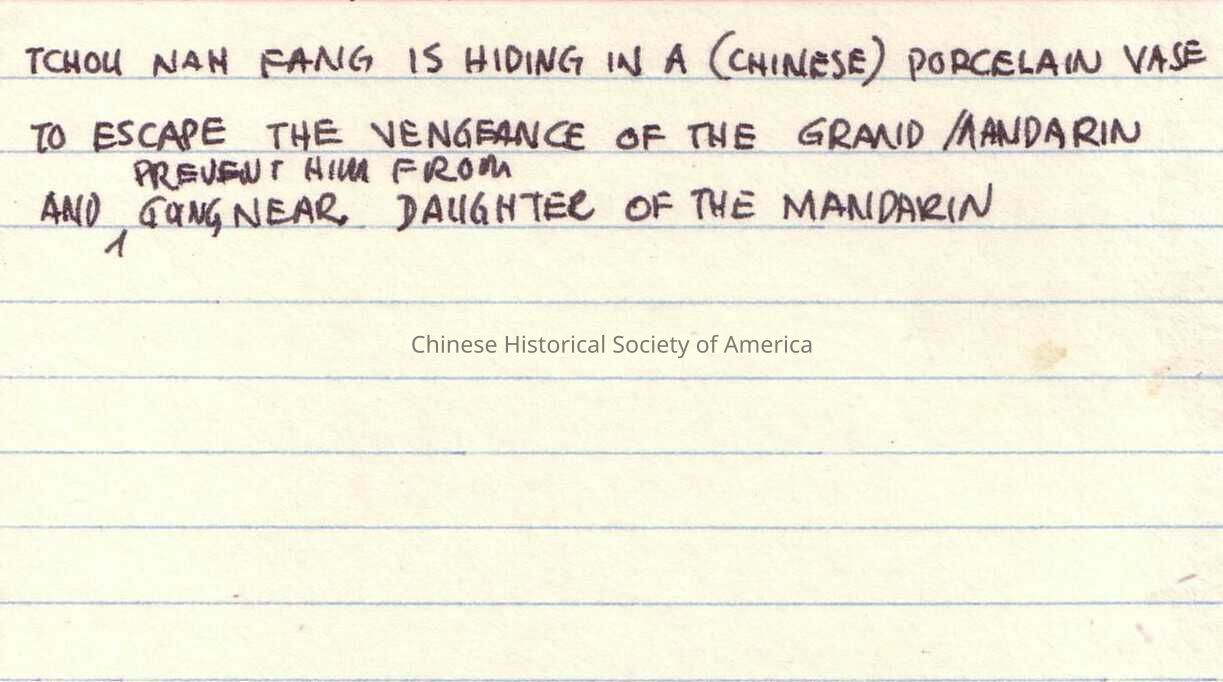 TCHOU NAH FANG IS HIDING IN A (CHINESE) PORCELAIN VASE
TO ESCAPE THE VENGEANCE OF THE GRAND MANDARIN
PREVENT HIM FROM
AND GOING NEAR DAUGHTER OF THE MANDARIN
Chinese Historical Society of America